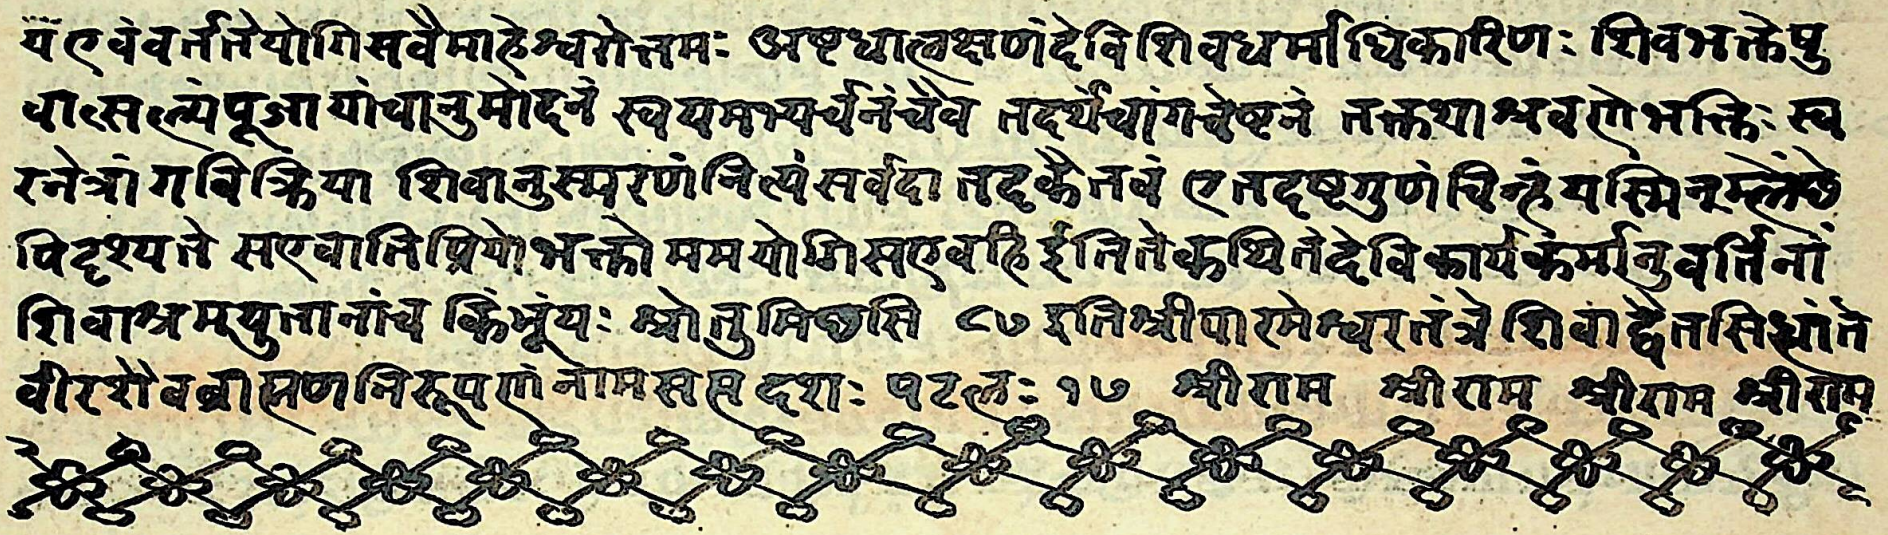 यएवंवर्ततेयोगिसवैमाहेश्वरोत्तमः अष्टधालक्षणंदेविशिवधर्माधिकारिणः शिवभक्तेषु
वात्सल्यंपूजायांचानुमोदनं स्वयमभ्यर्चनंचैव तदर्थेचांगचेष्टनं तत्कथाश्रवणेभक्तिः स्व
रनेत्रांगविक्रिया शिवानुस्मरणंनित्यंसर्वदातदकैतवं एतदष्टगुणंचिन्हंयस्मिनम्लेंछे
पिदृश्यते सएवातिप्रियोभक्तोममयोगिसएवहि ईतितेकथितंदेविकार्यकंर्मानुवर्तिनां
शिवाश्रमयुतानांच किंभूंयः श्रोतुमिछसि ८७ इतिश्रीपारमेश्वरतंत्रेशिवांद्वैतसिध्धांते
वीरशैवब्राह्मणनिरूपणंनामसप्तदशः पटलः १७ श्रीराम श्रीराम श्रीराम श्रीराम